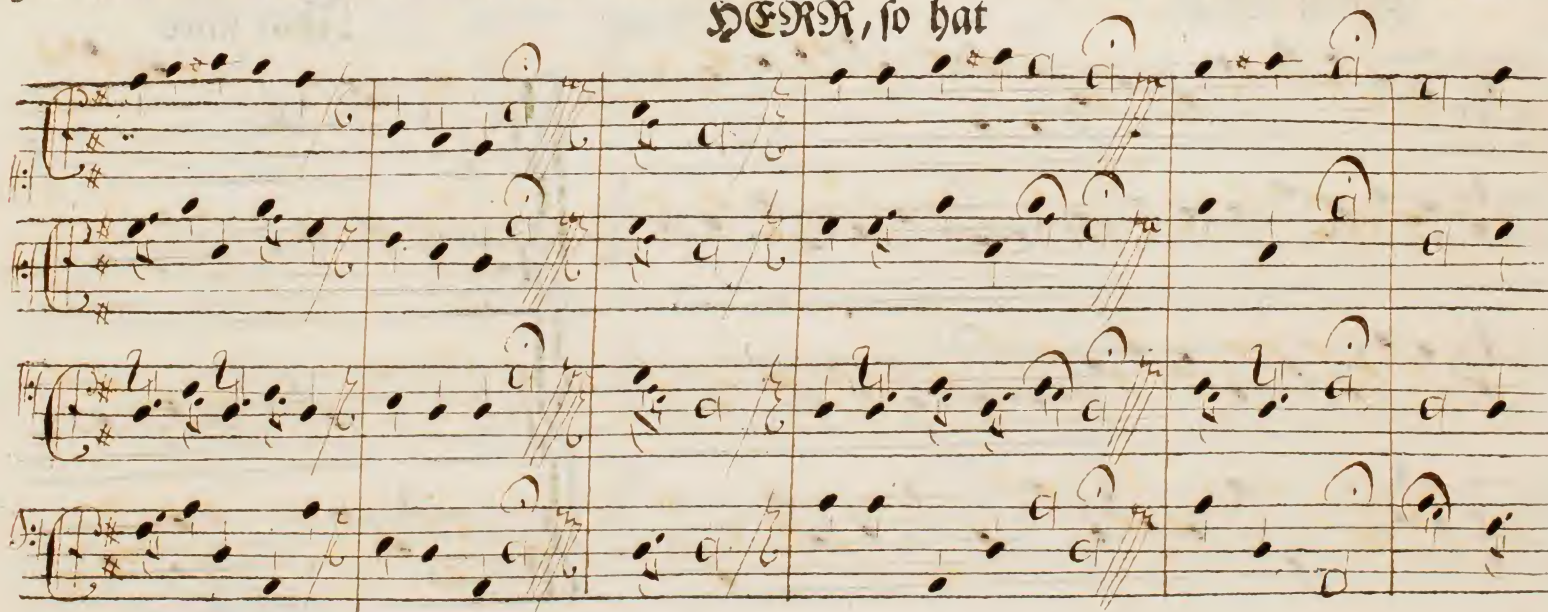 HERR, so hat